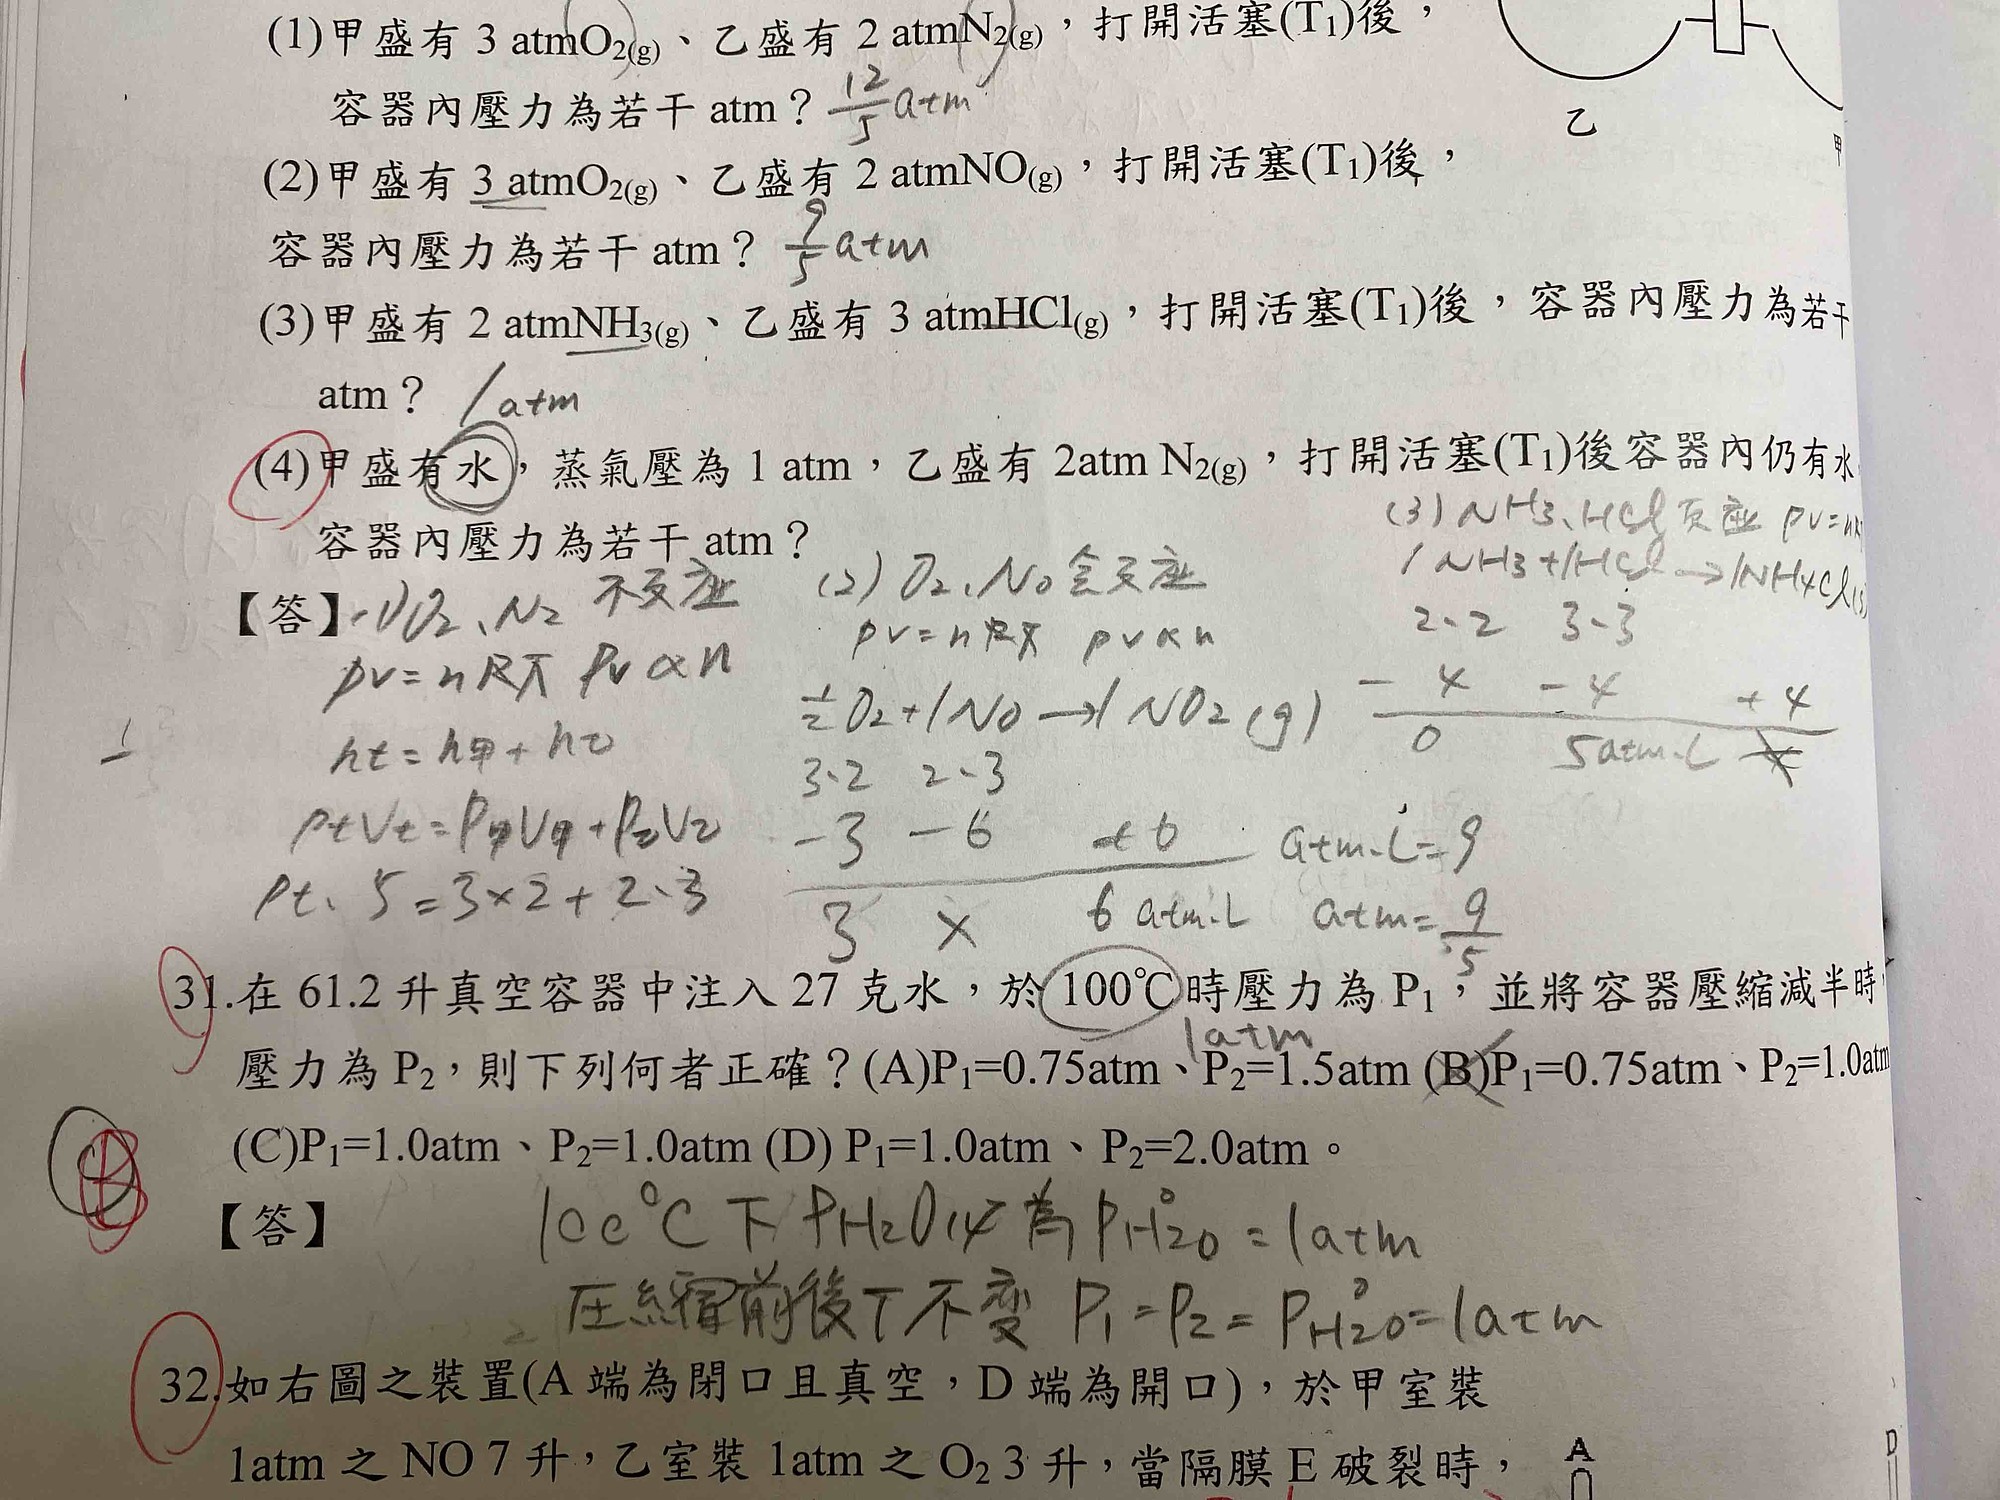 (1)甲盛有 3 atmO2(g)、乙盛有 2 atmN2(g)，打開活塞(T1)後，
容器內壓力為若干 atm？ 12/5 atm
乙
甲
(2)甲盛有 3 atmO2(g)、乙盛有 2 atmNO(g)，打開活塞(T1)後，
容器內壓力為若干 atm？ 9/5 atm
(3)甲盛有 2 atmNH3(g)、乙盛有 3 atmHCl(g)，打開活塞(T1)後，容器內壓力為若干
atm？ 1 atm
(4)甲盛有水，蒸氣壓為 1 atm，乙盛有 2atm N2(g)，打開活塞(T1)後容器內仍有水
容器內壓力為若干 atm？
【答】(1) O2、N2 不反應
PV=nRT PV∝n
nt=n甲+n乙
PtVt=P甲V甲+P乙V乙
Pt．5=3×2+2．3
(2) O2、NO 会反应
PV=nRT PV∝n
1/2 O2+1NO→1NO2(g)
3．2 2．3
-3 -6 +6
3 X 6 atm．L
atm．L=9
atm=9/5
(3) NH3、HCl 反应 PV=nRT
1NH3+1HCl→1NH4Cl(s)
2．2 3．3
-4 -4 +4
0 5atm．L
31.在 61.2 升真空容器中注入 27 克水，於 100℃時壓力為 P1，並將容器壓縮減半時，
1atm
壓力為 P2，則下列何者正確？(A)P1=0.75atm、P2=1.5atm (B)P1=0.75atm、P2=1.0atm
(C)P1=1.0atm、P2=1.0atm (D) P1=1.0atm、P2=2.0atm。
【答】 100°C下 PH2O 為 P°H2O=1atm
圧縮前後T不変 P1=P2=P°H2O=1atm
32.如右圖之裝置(A 端為閉口且真空，D 端為開口)，於甲室裝
1atm 之 NO 7 升，乙室裝 1atm 之 O2 3 升，當隔膜 E 破裂時，
A
D